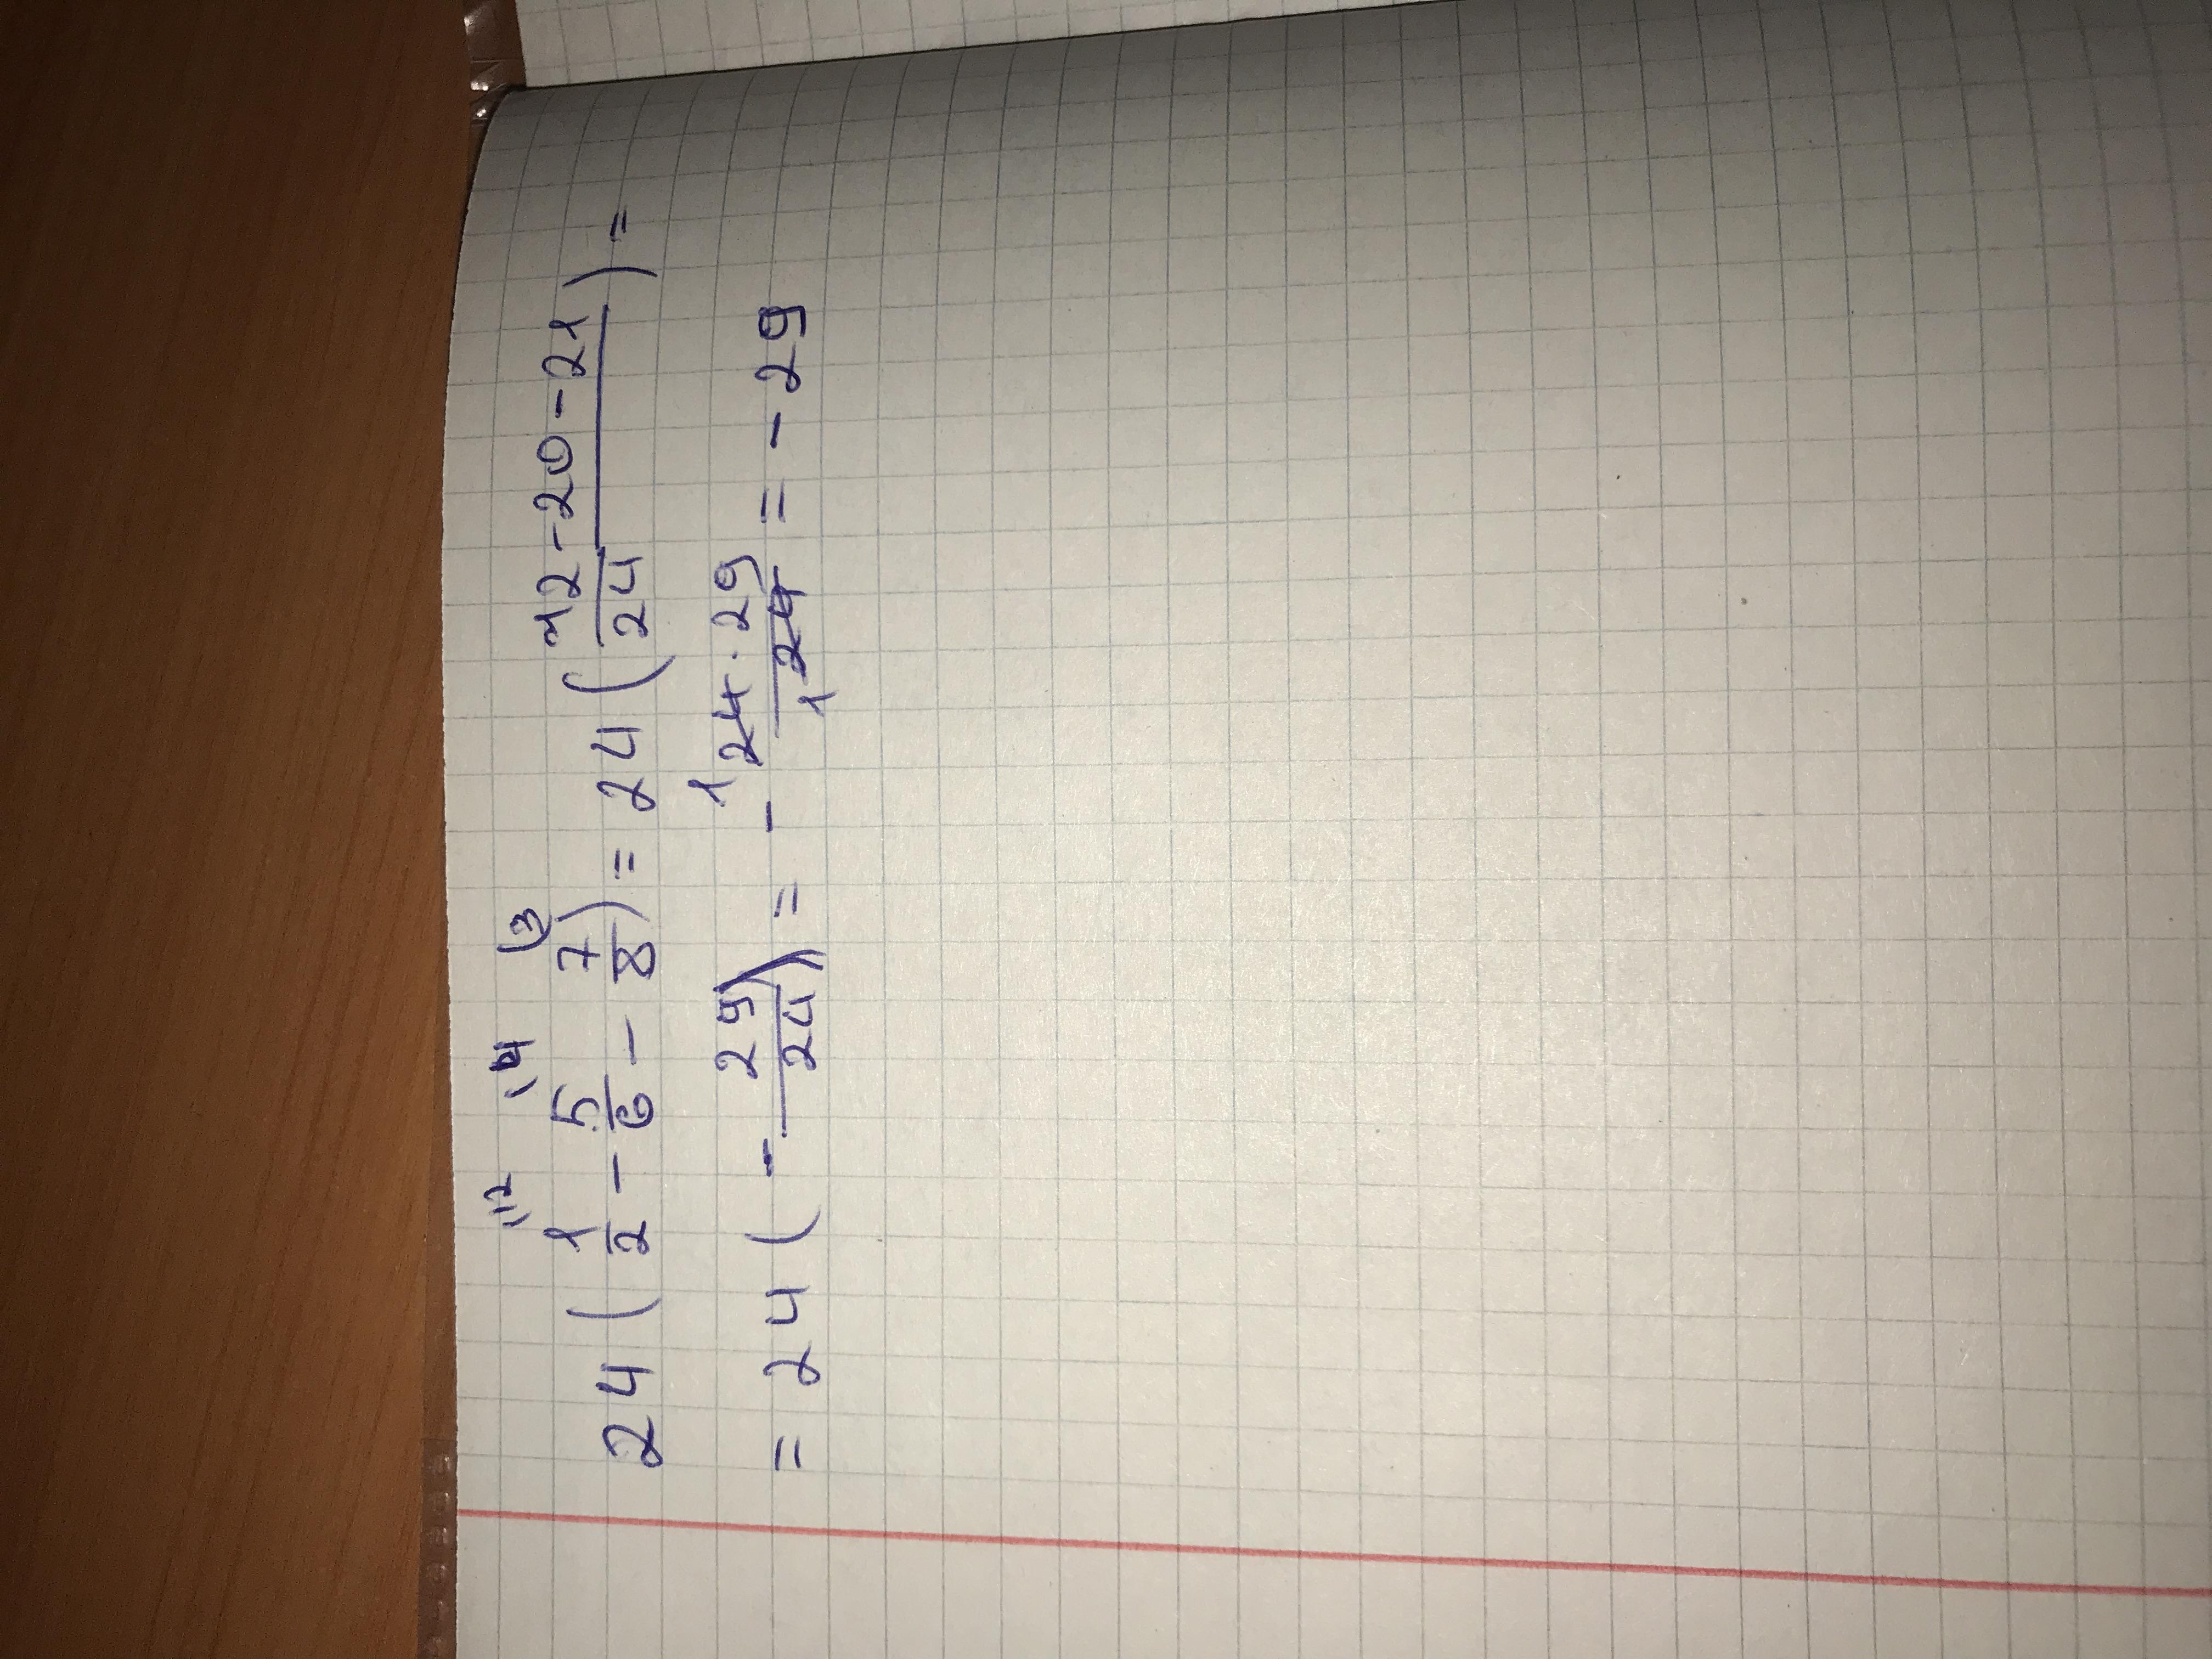 24 ( 1/2 \12 - 5/6 \4 - 7/8 \3 ) = 24 ( 12-20-21/24 ) =
= 24 ( - 29/24 ) = - 1 24 · 29/1 24 = - 29